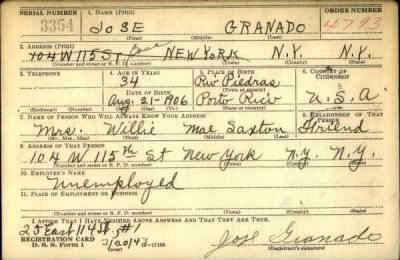 SERIAL NUMBER 1. NAME (Print) ORDER NUMBER
3354 JOSE GRANADO 4793
(First) (Middle) (Last)
2. ADDRESS (Print)
104 W 115 St NEW YORK N.Y. N.Y.
(Number and street or R. F. D. number) (Town) (County) (State)
3. TELEPHONE 4. AGE IN YEARS 5. PLACE OF BIRTH 6. COUNTRY OF CITIZENSHIP
34 Rio Piedras
DATE OF BIRTH (Town or county)
Aug. 21-1906 Porto Rico U.S.A
(Exchange) (Number) (Mo.) (Day) (Yr.) (State or country)
7. NAME OF PERSON WHO WILL ALWAYS KNOW YOUR ADDRESS 8. RELATIONSHIP OF THAT PERSON
Mrs. Willie Mae Saxton Friend
(Mr., Mrs., Miss) (First) (Middle) (Last)
9. ADDRESS OF THAT PERSON
104 W 115th St New York N.Y. N.Y.
(Number and street or R. F. D. number) (Town) (County) (State)
10. EMPLOYER'S NAME
Unemployed
11. PLACE OF EMPLOYMENT OR BUSINESS
(Number and street or R. F. D. number) (Town) (County) (State)
I AFFIRM THAT I HAVE VERIFIED ABOVE ANSWERS AND THAT THEY ARE TRUE.
25 East 114 St. #1
REGISTRATION CARD
D. S. S. Form 1 16-17105
Jose Granado
(Registrant's signature)